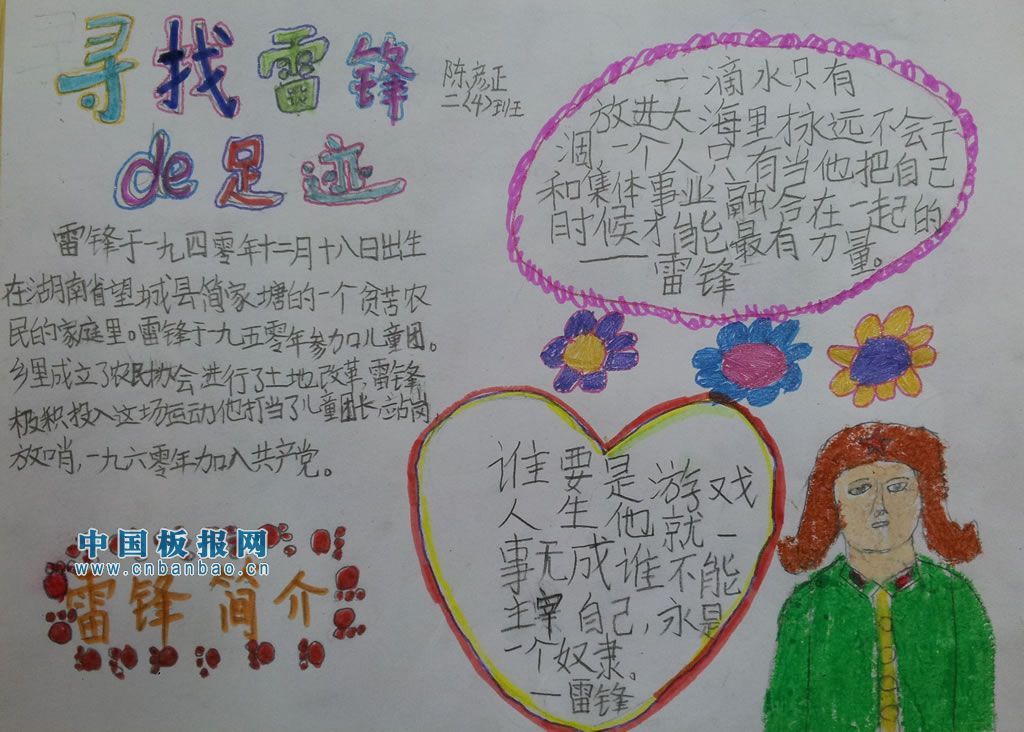 寻找雷锋
de足迹
陈彦正
二(4)班
雷锋于一九四零年十二月十八日出生
在湖南省望城县简家塘的一个贫苦农
民的家庭里。雷锋于一九五零年参加儿童团。
乡里成立了农民协会,进行了土地改革,雷锋
极积投入这场运动他打当了儿童团长,站岗
放哨,一九六零年加入共产党。
一滴水只有
放进大海里永远不会干
涸一个人只有当他把自己
和集体事业融合在一起的
时候才能最有力量。
——雷锋
谁要是游戏
人生他就一
事无成谁不能
主宰自己,永是
一个奴隶。
一雷锋
雷锋简介
中国板报网
www.cnbanbao.cn